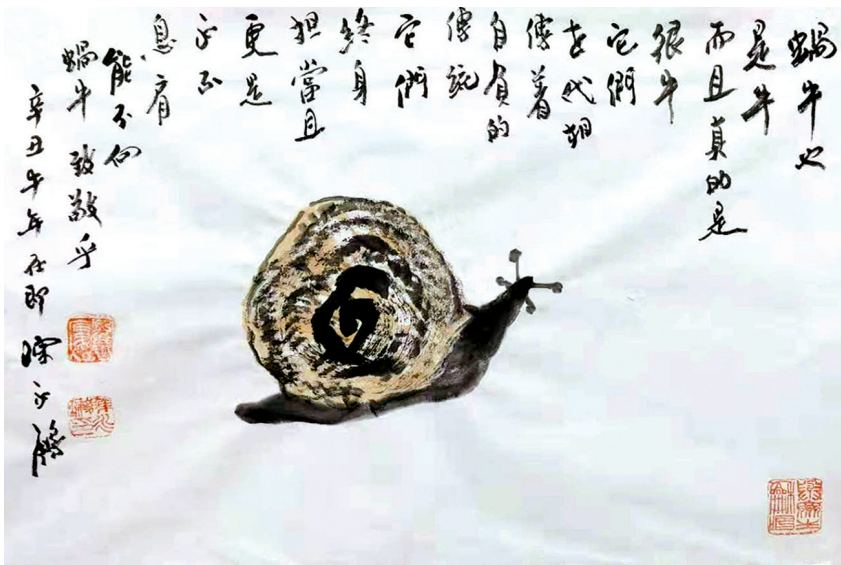 蝸牛也
是牛
而且真的是
很牛
它們
世代相
傳着
自負的
傳統
它們
終身
担當且
更是
永不
息肩
能不向
蝸牛致敬乎
辛丑牛年在即 陳永